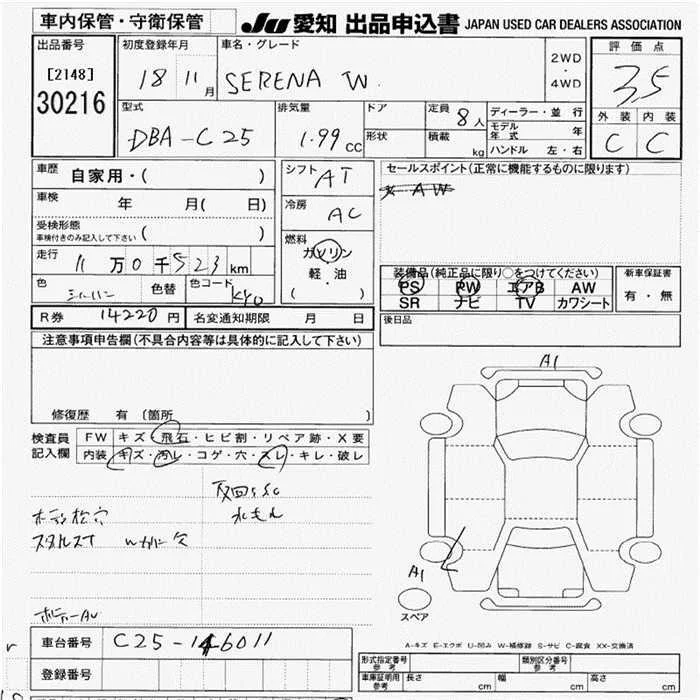 車内保管・守衛保管
JU 愛知 出品申込書 JAPAN USED CAR DEALERS ASSOCIATION
出品番号
[2148]
30216
初度登録年月
18 11月
車名・グレード
SERENA W
2WD
・
4WD
評価点
3.5
外装 内装
C C
型式
DBA-C25
排気量
1.99 CC
ドア
形状
定員 8人
積載 kg
ディーラー・並行
モデル年式 年
ハンドル 左・右
車歴
自家用・( )
車検
年 月( 日)
受検形態
車検付きのみ記入して下さい ( )
走行
11万0千523km
色
色替
色コード
KY0
シフト AT
冷房 AC
燃料
ガソリン
軽・油
( )
セールスポイント(正常に機能するものに限ります)
AW
装備品(純正品に限り○をつけてください)
PS PW エアB AW
SR ナビ TV カワシート
新車保証書
有・無
R券 14220円 名変通知期限 月 日
後日品
注意事項申告欄(不具合内容等は具体的に記入して下さい)
修復歴 有 〔箇所 〕
検査員
記入欄
FW キズ・飛石・ヒビ割・リペア跡・X要
内装 キズ・汚レ・コゲ・穴・スレ・キレ・破レ
A1
A1
スペア
A-キズ E-エクボ U-凹み W-補修跡 S-サビ C-腐食 XX-交換済
車台番号 C25-146011
登録番号
形式指定番号 参考
類別区分番号 参考
車庫証明用 参考 長さ cm 幅 cm 高さ cm